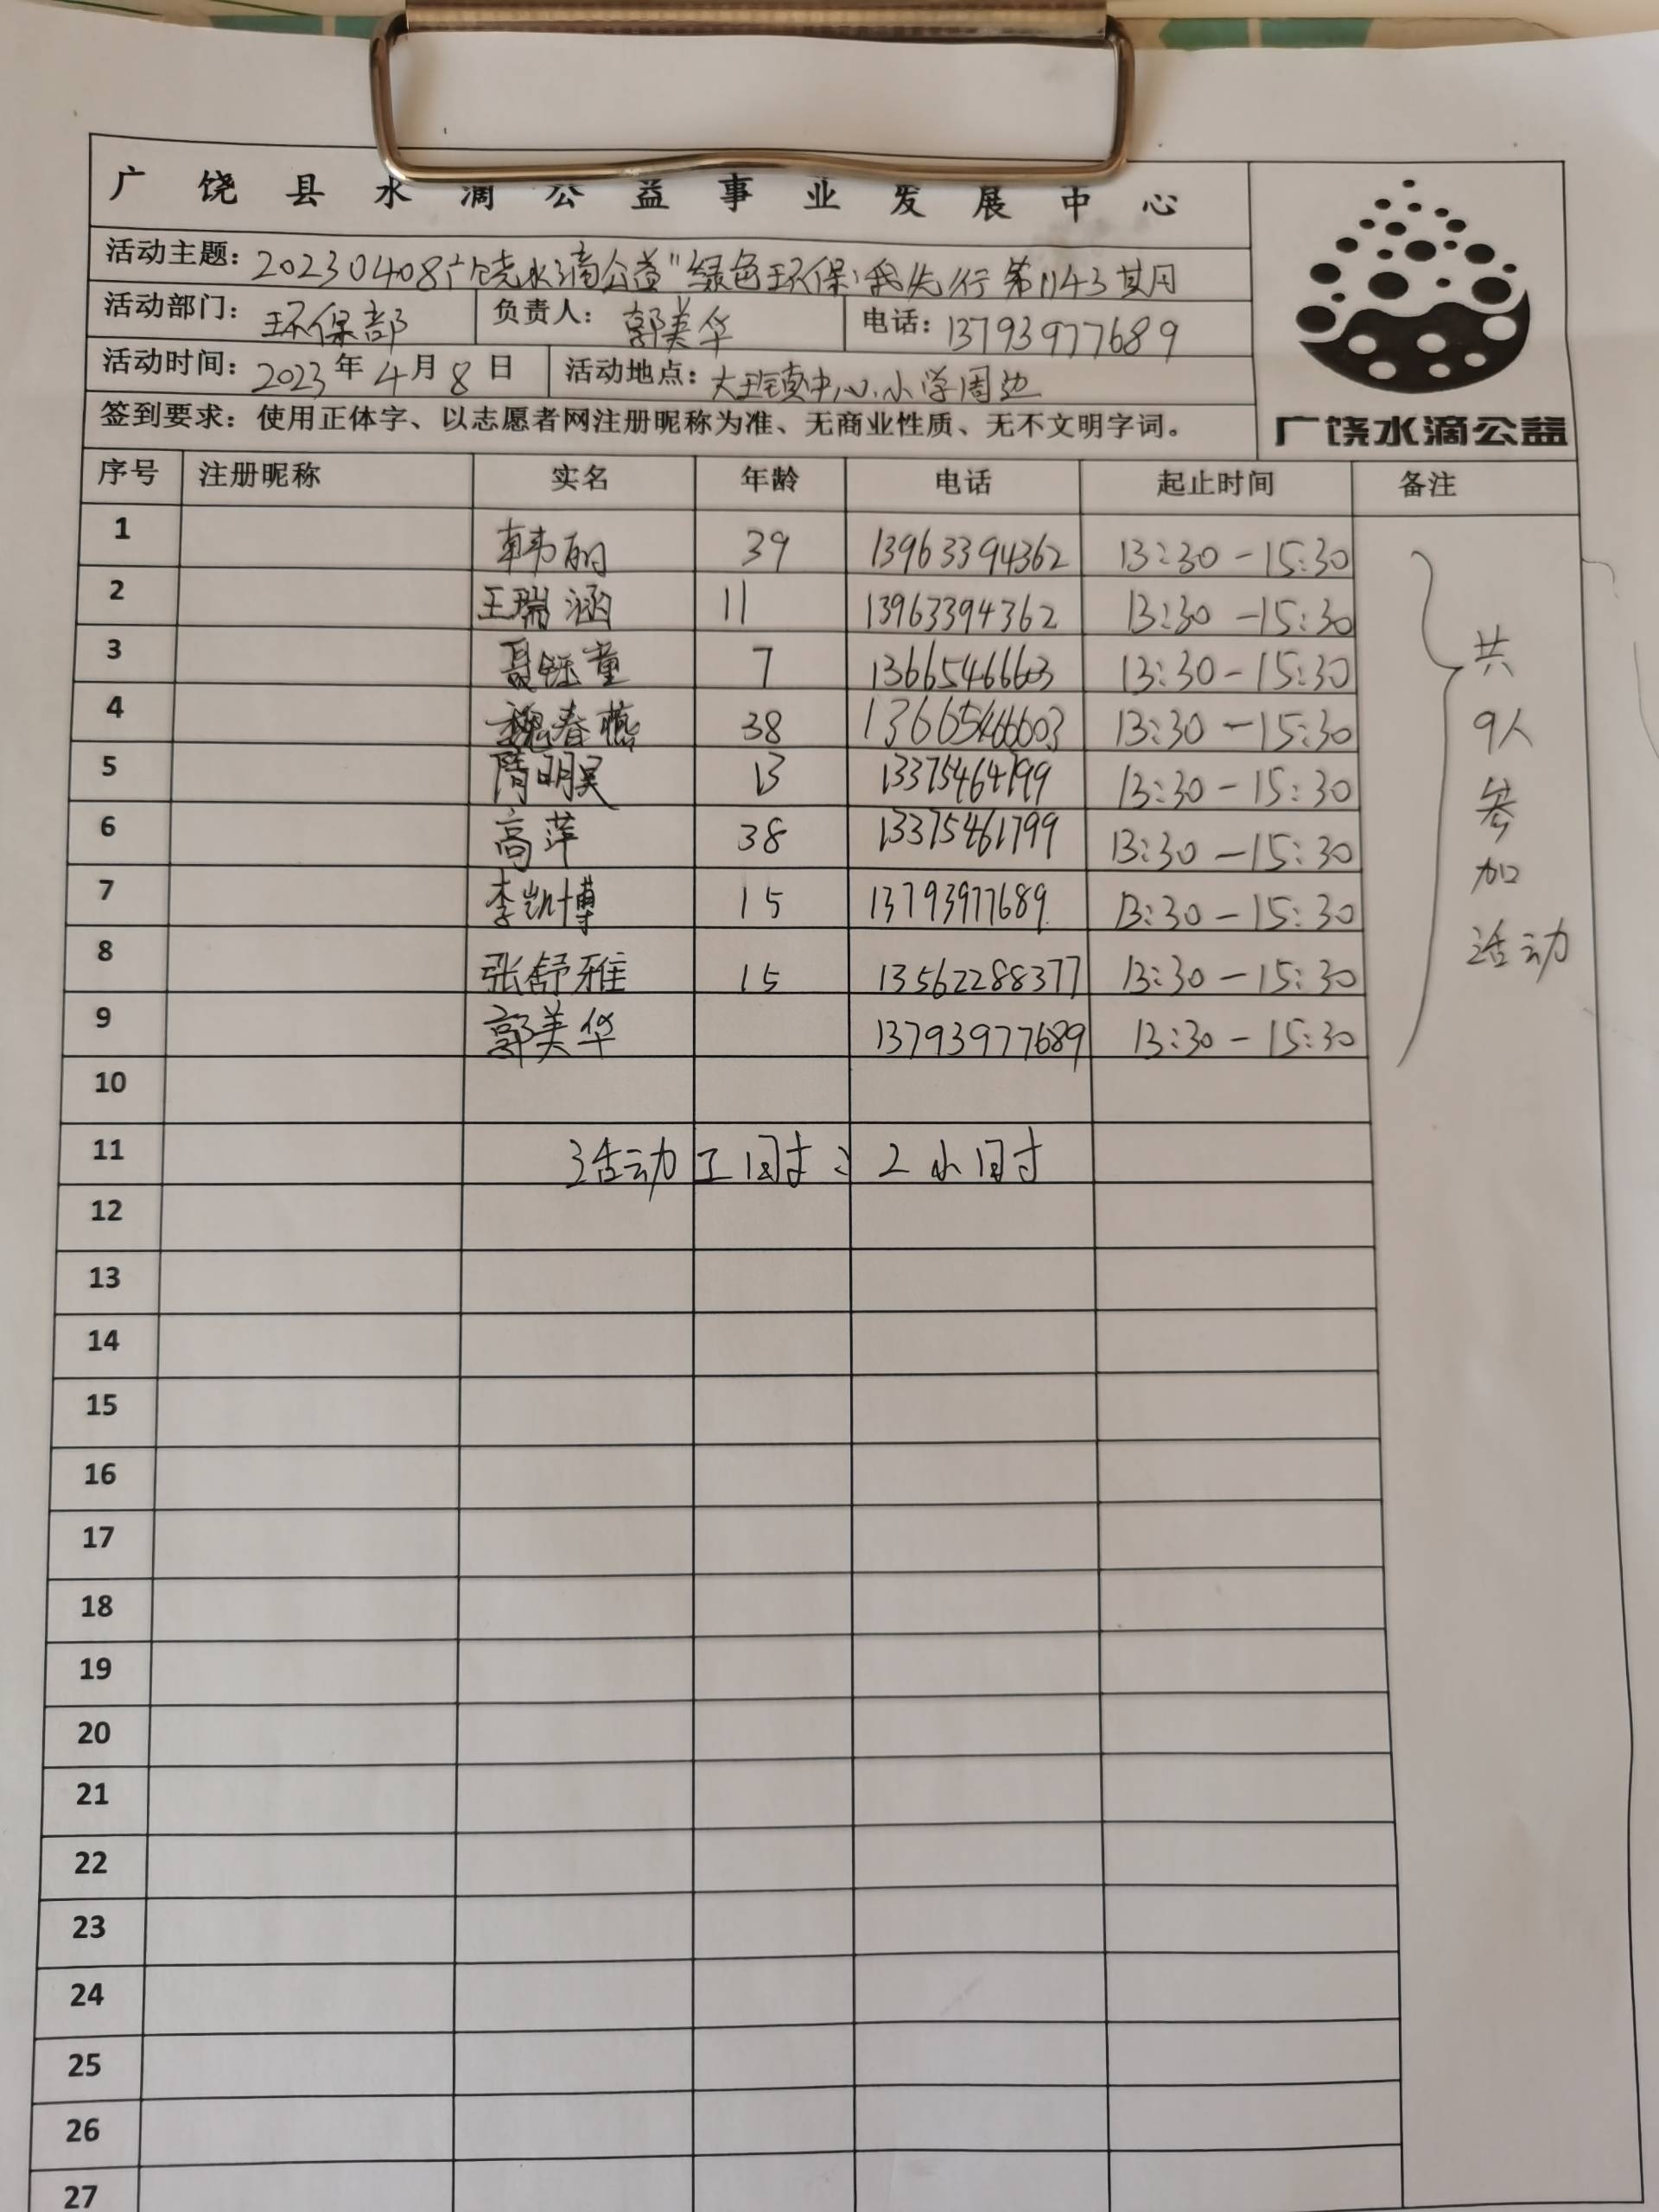 广饶县水滴公益事业发展中心
活动主题: 20230408广饶水滴公益"绿色环保,我先行第1143期
活动部门: 环保部 负责人: 郭美华 电话: 13793977689
活动时间: 2023年4月8日 活动地点: 大王镇中心小学周边
签到要求: 使用正体字、以志愿者网注册昵称为准、无商业性质、无不文明字词。
广饶水滴公益
序号 注册昵称 实名 年龄 电话 起止时间 备注
1 韩丽 39 13963394362 13:30-15:30
2 王瑞涵 11 13963394362 13:30-15:30
3 聂钰童 7 13665466603 13:30-15:30
4 魏春燕 38 13665466603 13:30-15:30
5 隋明昊 13 13375464799 13:30-15:30
6 高萍 38 13375461799 13:30-15:30
7 李凯博 15 13793977689 13:30-15:30
8 张舒雅 15 13562288377 13:30-15:30
9 郭美华 13793977689 13:30-15:30
共
9人
参
加
活动
10
11 活动工时: 2小时
12
13
14
15
16
17
18
19
20
21
22
23
24
25
26
27